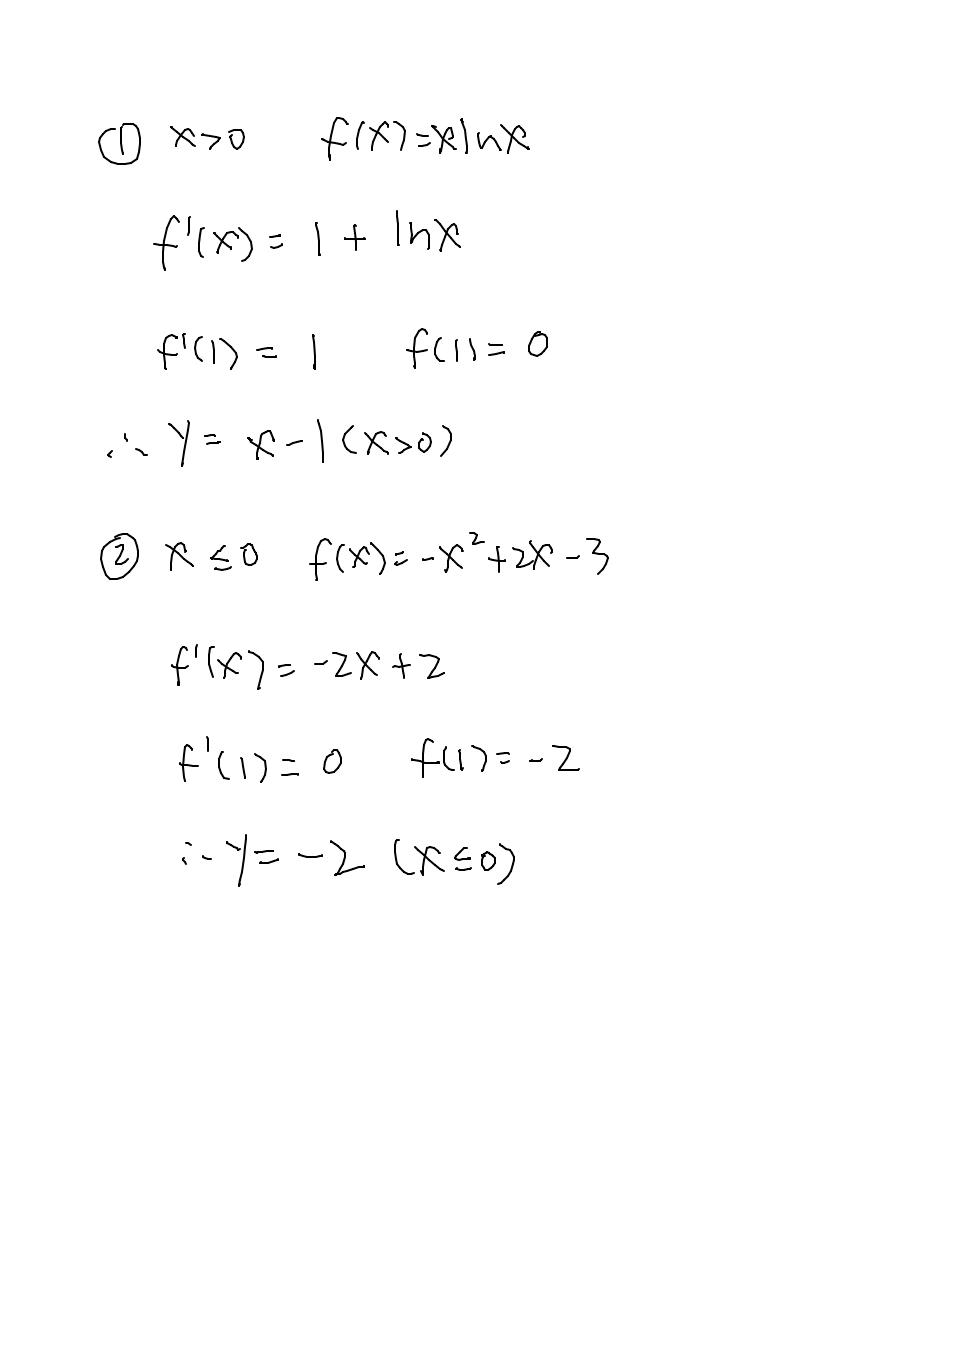 ① x>0 f(x)=xlnx
f'(x)= 1 + lnx
f'(1) = 1 f(1)= 0
∴ y= x-1 (x>0)
② x≤0 f(x)=-x²+2x-3
f'(x)=-2x+2
f'(1)=0 f(1)=-2
∴ y=-2 (x≤0)